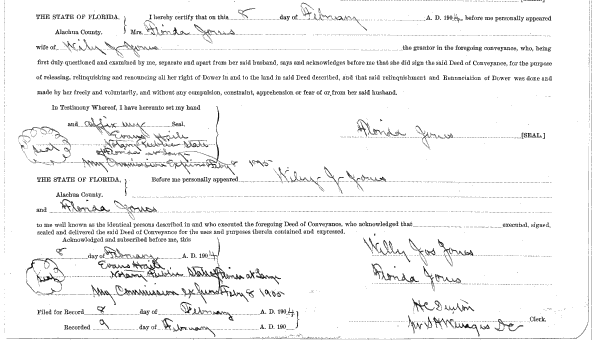 THE STATE OF FLORIDA, I hereby certify that on this 8 day of February A. D. 1904, before me personally appeared
Alachua County. Mrs Florida Jones
wife of Wiley J Jones the grantor in the foregoing conveyance, who, being
first duly questioned and examined by me, separate and apart from her said husband, says and acknowledges before me that she did sign the said Deed of Conveyance, for the purpose
of releasing, relinquishing and renouncing all her right of Dower in and to the land in said Deed described, and that said relinquishment and Renunciation of Dower was done and
made by her freely and voluntarily, and without any compulsion, constraint, apprehension or fear of or from her said husband.
In Testimony Whereof, I have hereunto set my hand
and affix my Seal.
Florida Jones [SEAL.]
Evans Haile
Seal
Notary Public State
of Florida at Large
My Commission Expires Feby 8 1905
THE STATE OF FLORIDA, Before me personally appeared Wiley J Jones
Alachua County.
and Florida Jones
to me well known as the identical persons described in and who executed the foregoing Deed of Conveyance, who acknowledged that executed, signed,
sealed and delivered the said Deed of Conveyance for the uses and purposes therein contained and expressed.
Acknowledged and subscribed before me, this
8 day of February A. D. 1904
Willy Jos Jones
Evans Haile
Florida Jones
Seal
Notary Public State Florida at Large
My Commission expires Feby 8 1905
Filed for Record 8 day of February A. D. 1904
H C Denton
Clerk.
Recorded 9 day of February A. D. 190
D C